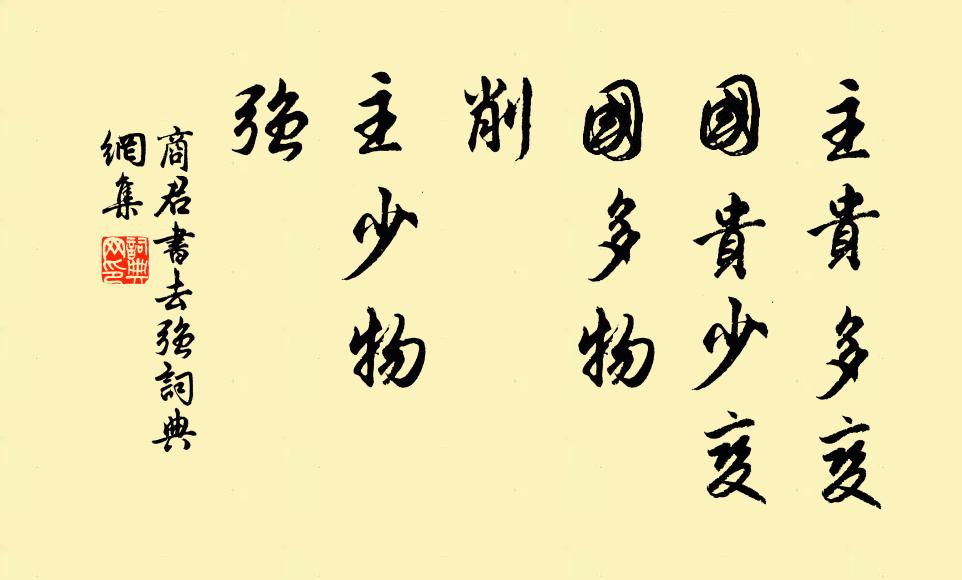 主貴多变
國貴少变
國多物
削
主少物
強
商君書去強詞典
網集
詞典网印